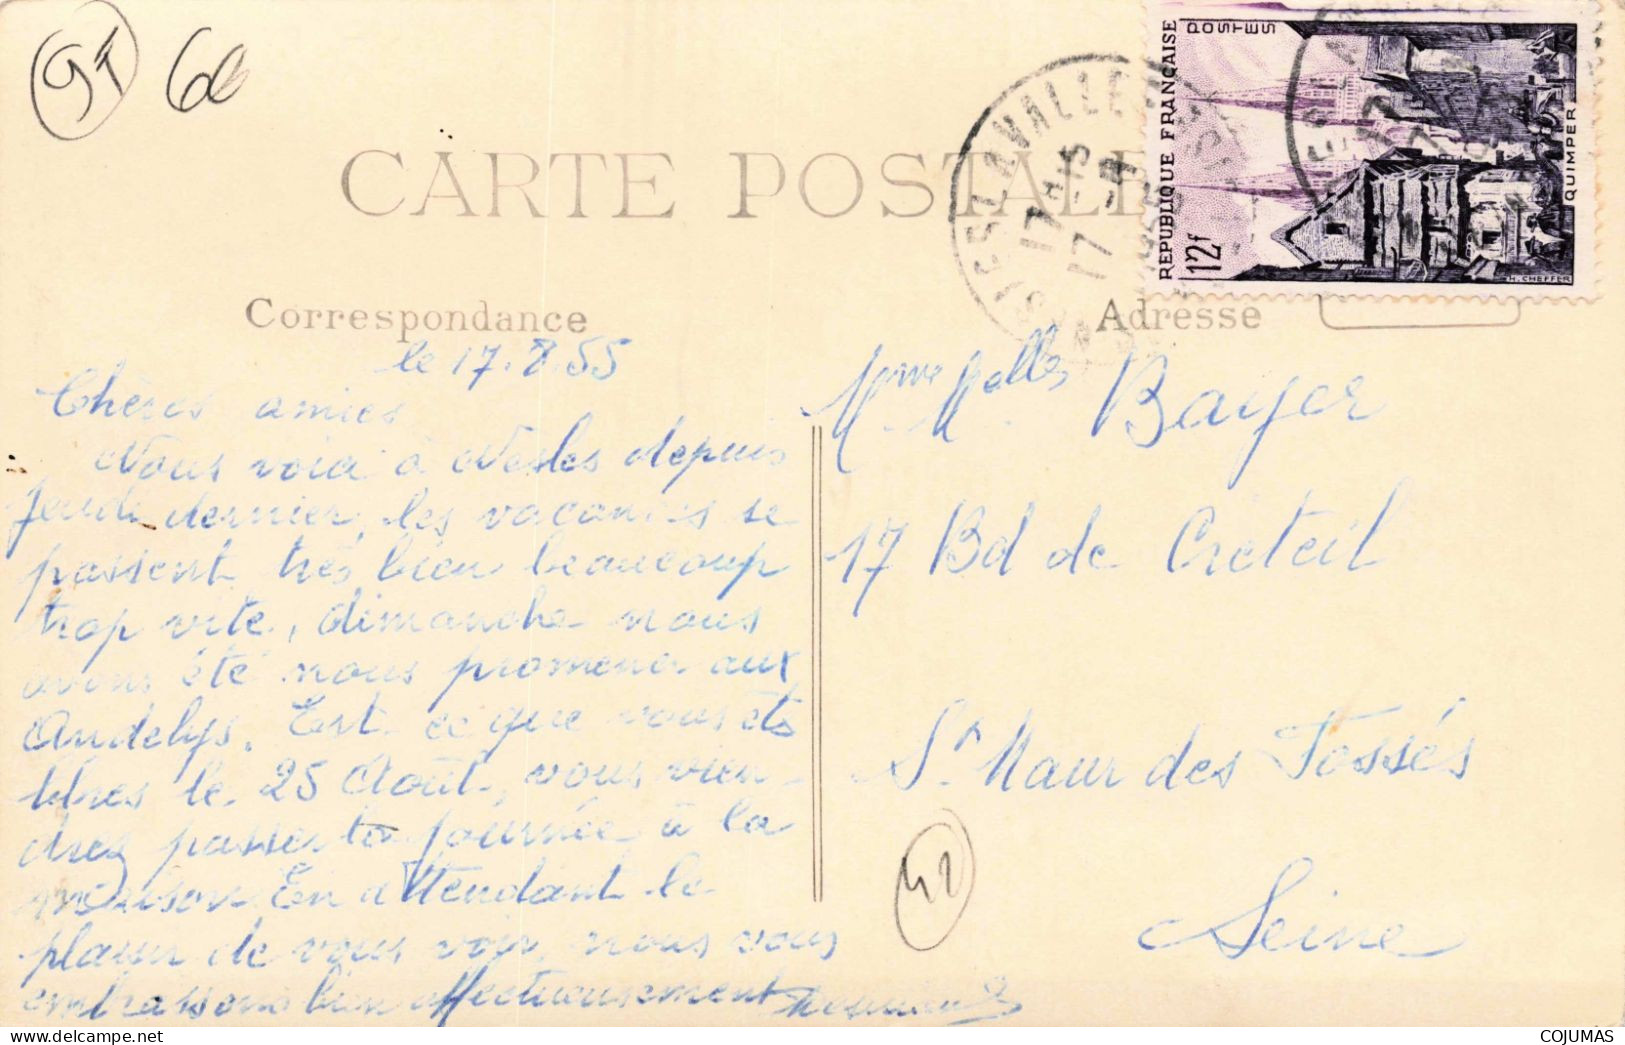 91
60
CARTE POSTALE
REPUBLIQUE FRANÇAISE
POSTES
12f
QUIMPER
H. CHEFFER
17H15
17
Correspondance
Adresse
le 17.8.55
Chères amies
Nous voici à Nesles depuis
jeudi dernier, les vacances se
passent très bien beaucoup
trop vite, dimanche nous
avons été nous promener aux
Andelys. Est ce que vous êtes
libres le 25 Août, vous vien-
drez passer la journée à la
maison. En attendant le
plaisir de vous voir, nous vous
embrassons bien affectueusement
Mme Melles Bayer
17 Bd de Créteil
St Maur des Fossés
Seine
42
COJUMAS